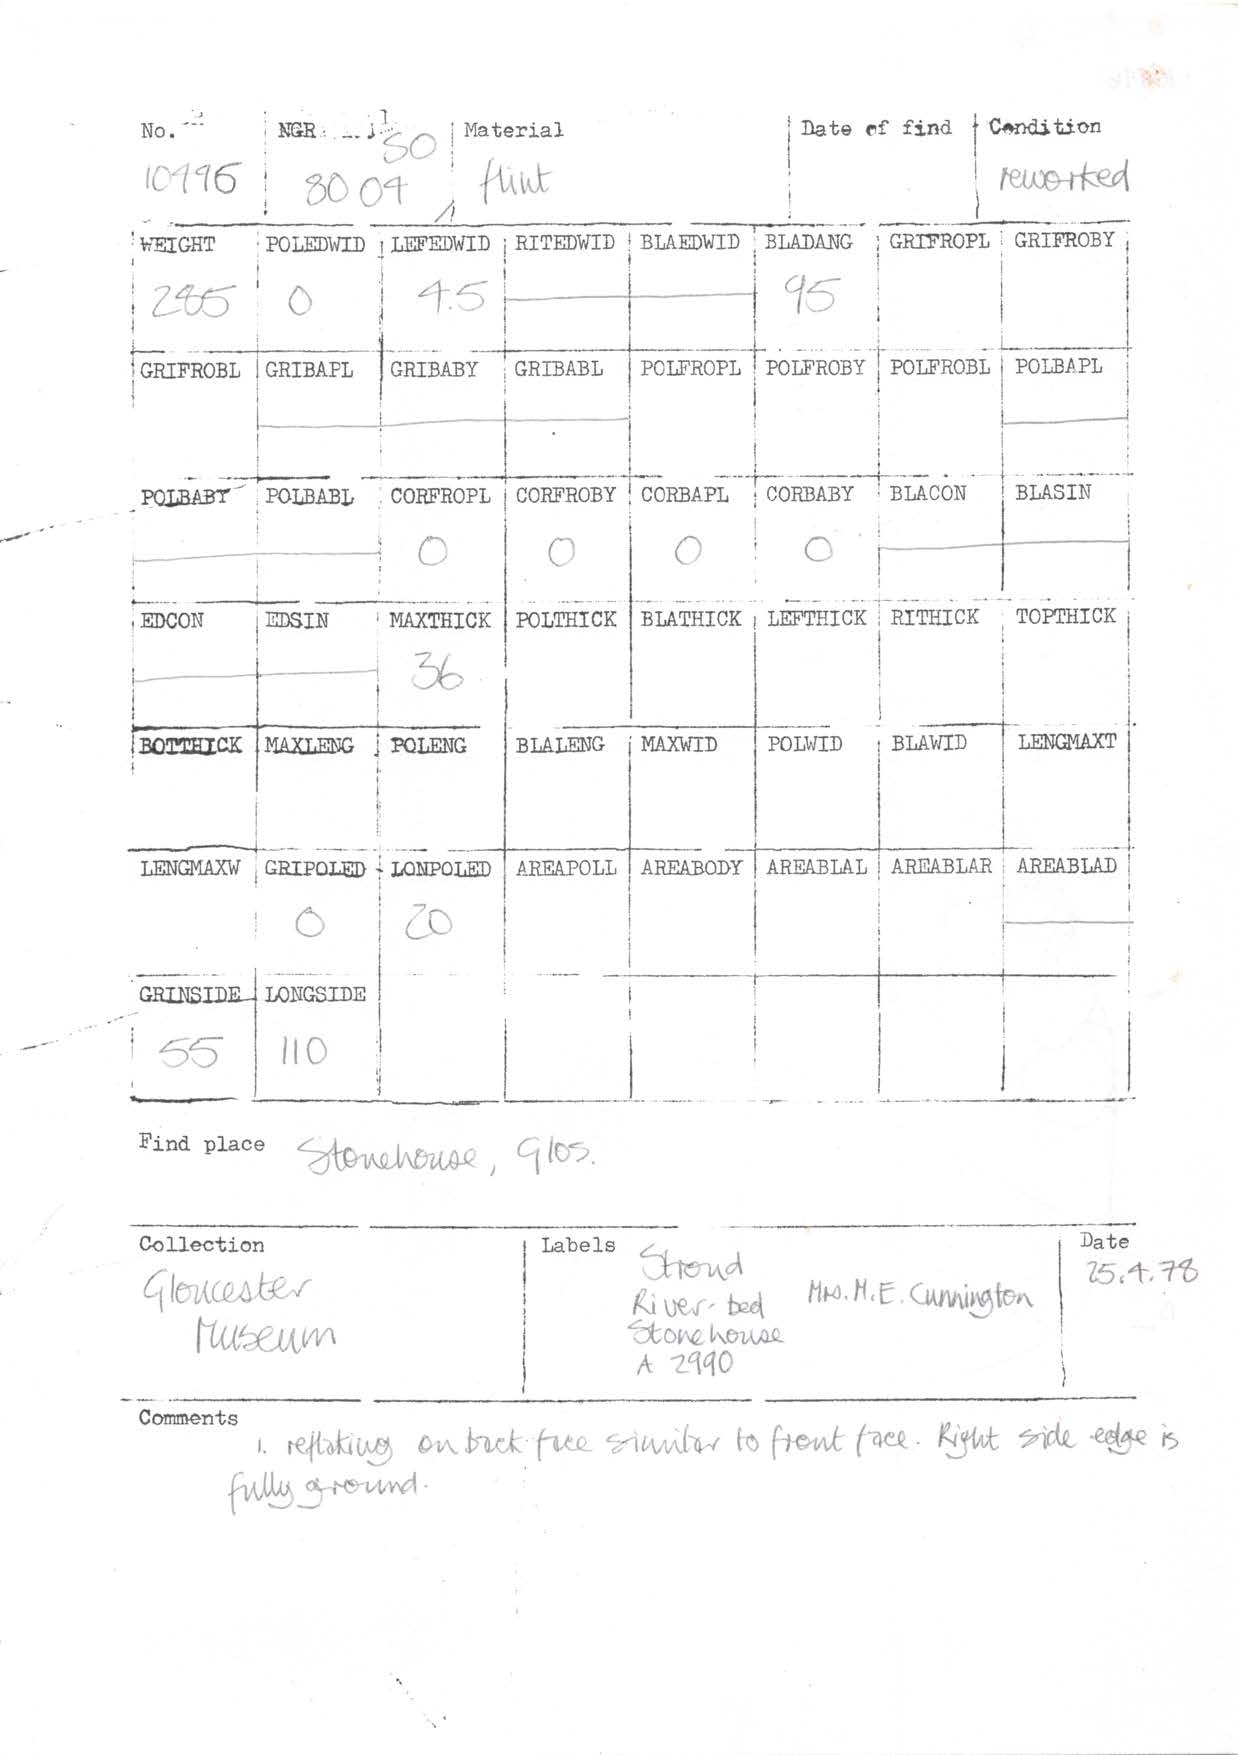 No. NGR Material Date of find Condition
10496 SO 8004 flint reworked
WEIGHT POLEDWID LEFEDWID RITEDWID BLAEDWID BLADANG GRIFROPL GRIFROBY
285 0 4.5 95
GRIFROBL GRIBAPL GRIBABY GRIBABL POLFROPL POLFROBY POLFROBL POLBAPL
POLBABY POLBABL CORFROPL CORFROBY CORBAPL CORBABY BLACON BLASIN
0 0 0 0
EDCON EDSIN MAXTHICK POLTHICK BLATHICK LEFTHICK RITHICK TOPTHICK
36
BOTTHICK MAXLENG POLENG BLALENG MAXWID POLWID BLAWID LENGMAXT
LENGMAXW GRIPOLED LONPOLED AREAPOLL AREABODY AREABLAL AREABLAR AREABLAD
0 20
GRINSIDE LONGSIDE
55 110
Find place Stonehouse, Glos.
Collection Labels Date
Gloucester
Museum
Stroud
River-bed
Stonehouse
A 2990
Mrs. M.E. Cunnington
25.4.78
Comments
1. reflaking on back face similar to front face. Right side edge is
fully ground.